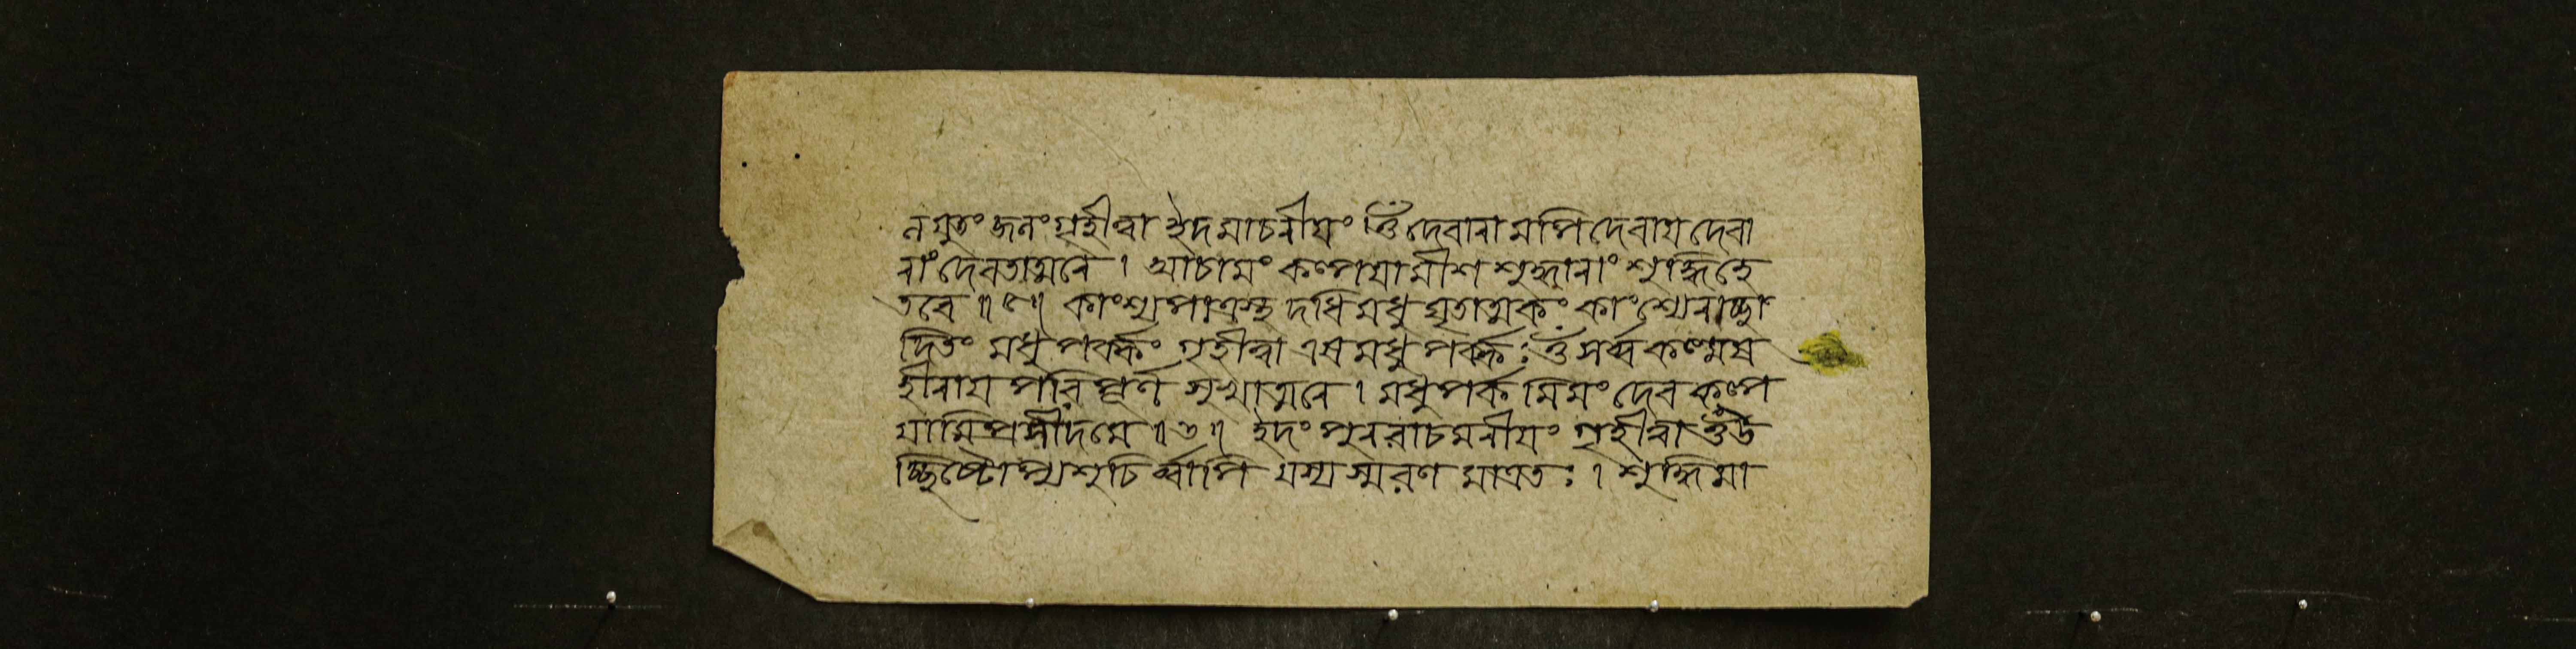 নযুতং জলং গৃহীত্বা ইদমাচনীয়ং ওঁ দেবানামপি দেবায় দেবা
নাং দেবতাত্মনে । আচামং কল্পয়ামীশ শুদ্ধানাং শুদ্ধিহে
তবে ॥ ৫ ॥ কাংশ্যপাত্রস্থ দধি মধু ঘৃতাত্মকং কাংশ্যেনাচ্ছা
দিতং মধুপর্ক্কং গৃহীত্বা এষ মধুপর্ক্কঃ ওঁ সর্ব্বকল্মষ
হীনায় পরিপূর্ণ সুখাত্মনে । মধুপর্কমিমং দেব কল্প
য়ামি প্রসীদ মে ॥ ৬ ॥ ইদং পুনরাচমনীয়ং গৃহীত্বা ওঁ উ
চ্ছিষ্টোপ্যশুচির্ব্বাপি যস্য স্মরণ মাত্রতঃ । শুদ্ধিমা